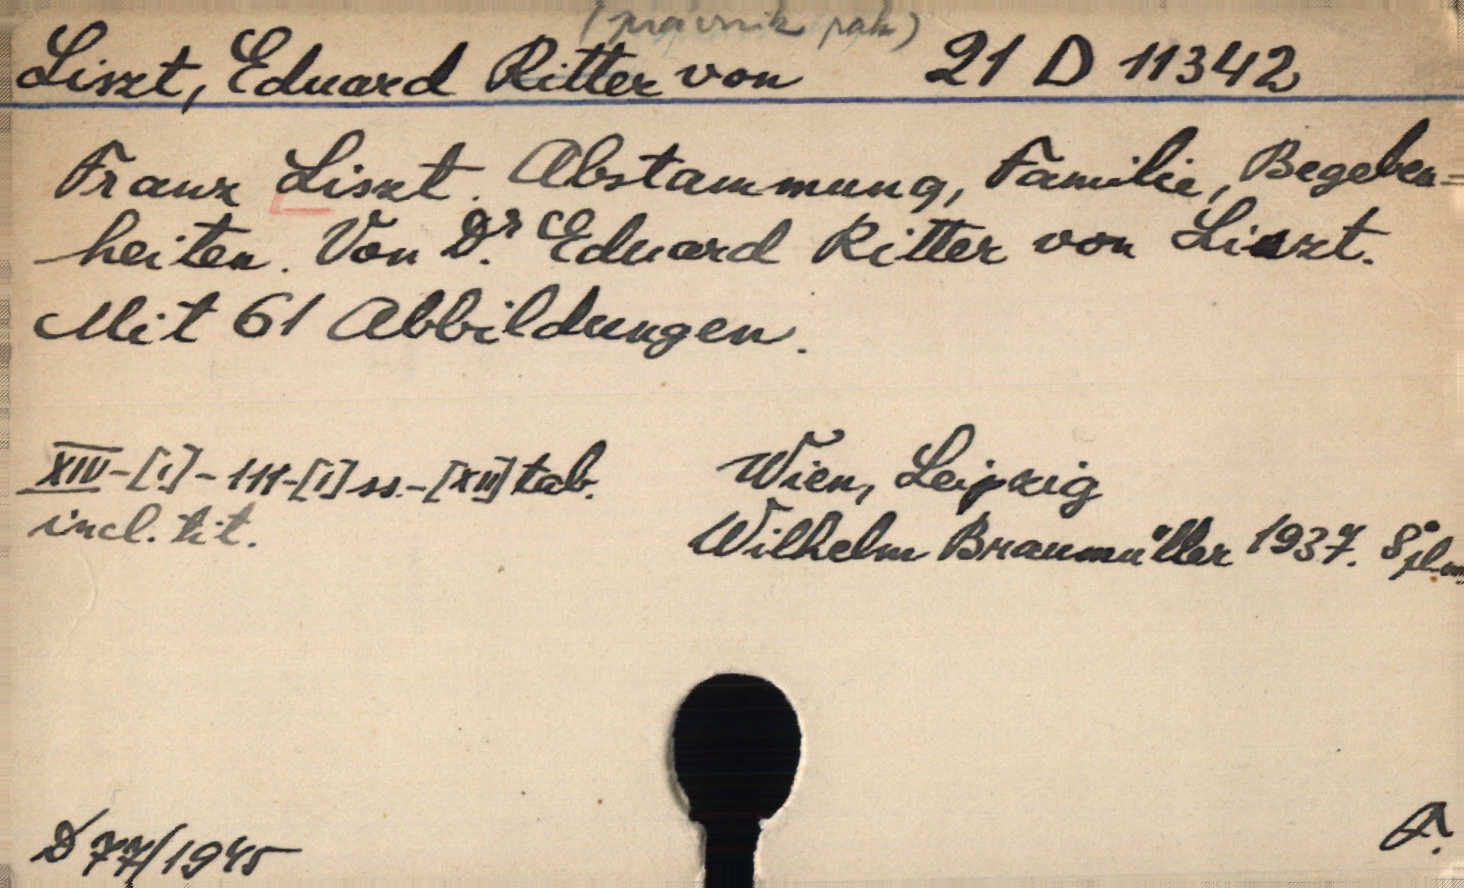 (právník rak)
Liszt, Eduard Ritter von 21 D 11342
Franz Liszt. Abstammung, Familie, Begeben=
heiten. Von Dr. Eduard Ritter von Liszt.
Mit 61 Abbildungen.
XIV-[I]-111-[I] ss.-[XII] tab. Wien, Leipzig
incl. tit. Wilhelm Braumüller 1937. 8°
D 77/1945